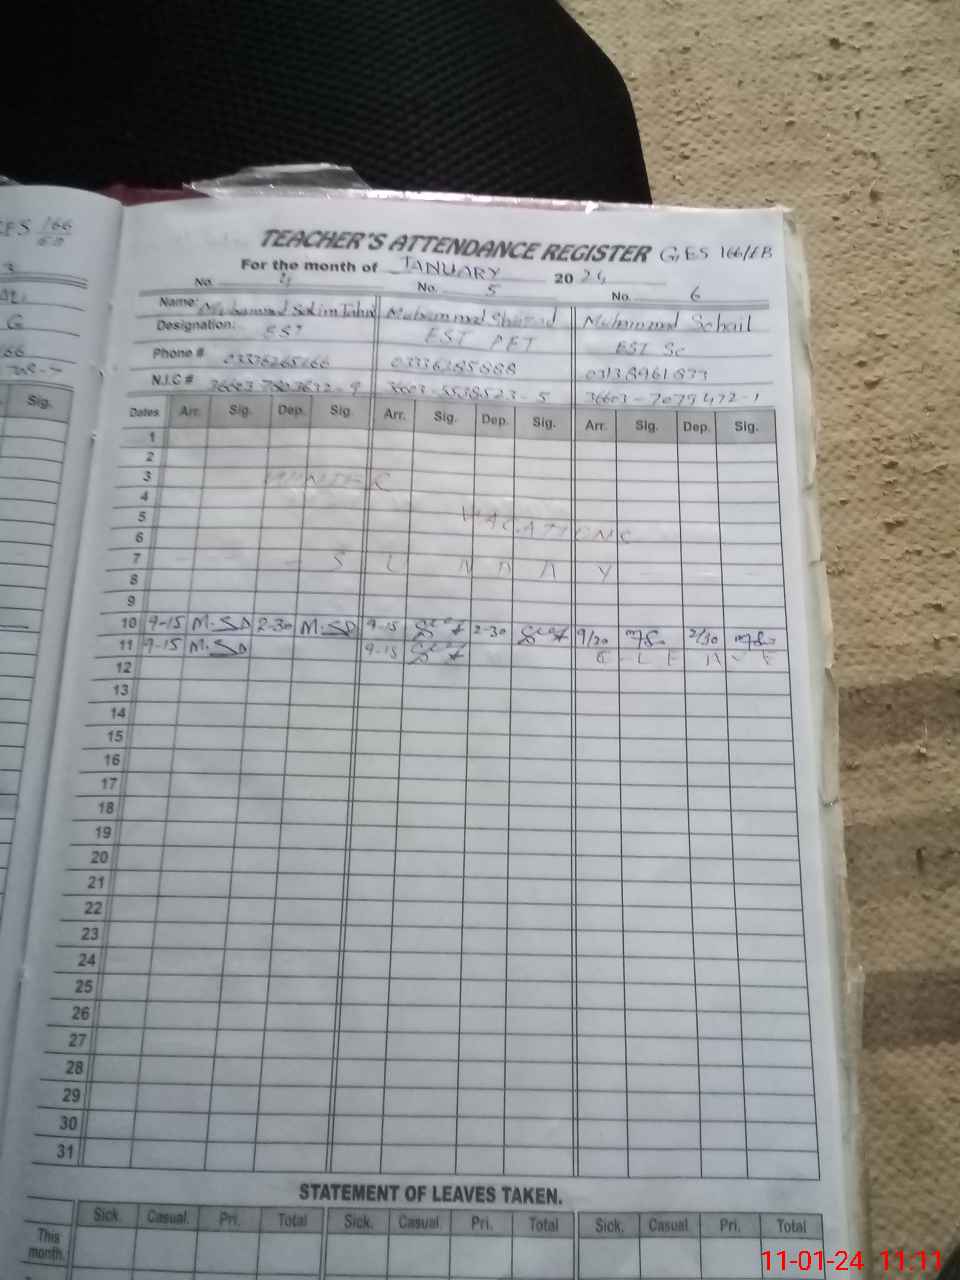 GES 166
EB
3
G
66
Sig.
TEACHER'S ATTENDANCE REGISTER GES 166/EB
For the month of JANUARY 2024
No. 4 No. 5 No. 6
Name: Muhammad Salim Tahir Muhammad Shahzad Muhammad Sohail
Designation: EST EST PET EST Sc
Phone # 03336285888 03138961877
N.I.C # 36603-5538523-5 36603-7079472-1
Dates Arr. Sig. Dep. Sig. Arr. Sig. Dep. Sig. Arr. Sig. Dep. Sig.
1
2
3 WINTER
4
5 VACATIONS
6
7 - - - S U N D A Y - - -
8
9
10 9-15 M.SD 2-30 M.SD 9-15 2-30 9/20 2/30
11 9-15 M.SD 9-15 C-LEAVE
12
13
14
15
16
17
18
19
20
21
22
23
24
25
26
27
28
29
30
31
STATEMENT OF LEAVES TAKEN.
Sick. Casual. Pri. Total Sick. Casual. Pri. Total Sick. Casual Pri. Total
This
month.
11-01-24 11:11